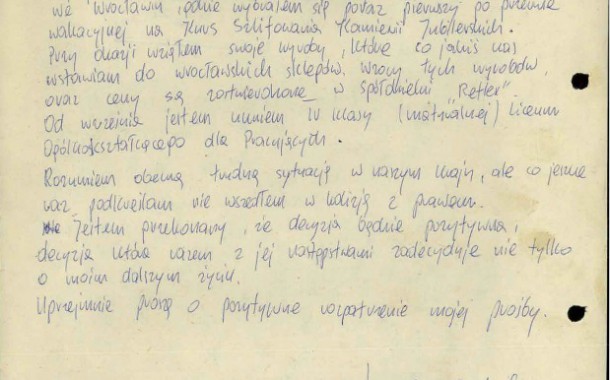 we Wrocławiu, gdzie wybrałem się poraz pierwszy po przerwie
wakacyjnej na Kurs Szlifowania Kamieni Jubilerskich.
Przy okazji wziąłem swoje wyroby, które co jakiś czas
wstawiam do wrocławskich sklepów. Wzory tych wyrobów,
oraz ceny są zatwierdzone w spółdzielni "Reflex".
Od września jestem uczniem IV klasy (maturalnej) Liceum
Ogólnokształcącego dla Pracujących.
Rozumiem obecną trudną sytuację w naszym kraju, ale co jeszcze
raz podkreślam nie wszedłem w kolizję z prawem.
Jestem przekonany, że decyzja będzie pozytywna,
decyzja która razem z jej następstwami zadecyduje nie tylko
o moim dalszym życiu.
Uprzejmie proszę o pozytywne rozpatrzenie mojej prośby.